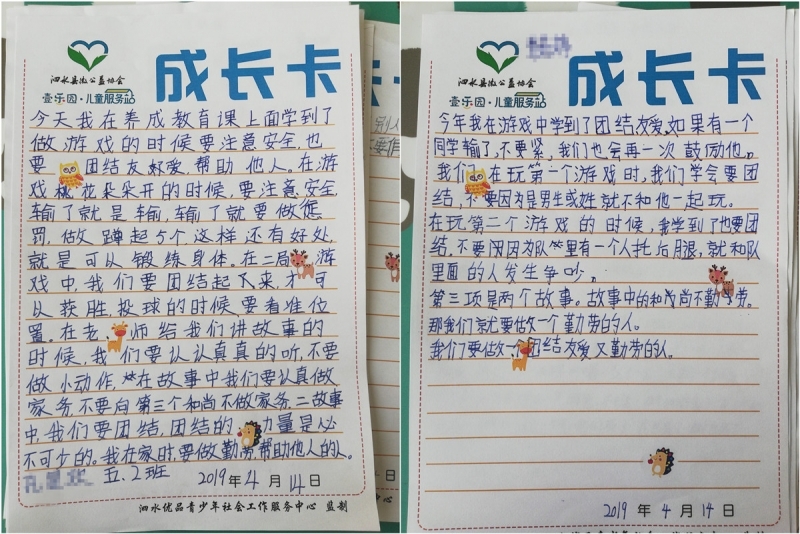 泗水县微公益协会
壹乐园·儿童服务站
成长卡
今天我在养成教育课上面学到了
做游戏的时候要注意安全,也
要团结友好爱,帮助他人。在游
戏桃花朵朵开的时候,要注意安全,
输了就是输,输了就要做惩
罚,做蹲起5个,这样还有好处,
就是可以锻练身体。在二局游
戏中,我们要团结起下来,才可
以获胜,投球的时候,要看准位
置。在老师给我们讲故事的
时候,我们要认认真真的听,不要
做小动作,在故事中我们要认真做
家务,不要向第三个和尚不做家务,二故事
中,我们要团结,团结的力量是必
不可少的。我在家时,要做勤劳帮助他人的人。
五.2班
2019年4月14日
泗水优品青少年社会工作服务中心 监制
泗水县微公益协会
壹乐园·儿童服务站
成长卡
今年我在游戏中学到了团结友爱,如果有一个
同学输了,不要紧,我们也会再一次鼓励他。
我们在玩第一个游戏时,我们学会要团
结,不要因为是男生或姓就不和他一起玩。
在玩第二个游戏的时候,我学到了也要团
结,不要因为队里有一个人托后月退,就和队
里面的人发生争吵。
第三项是两个故事。故事中的和尚不勤劳。
那我们京就要做一个勤劳的人。
我们要做一个团结友爱又勤劳的人。
2019年4月14日